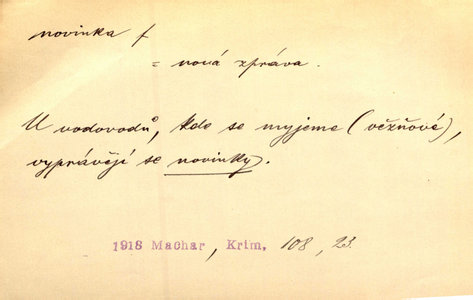 novinka f
= nová zpráva.
U vodovodů, kde se myjeme (věžňové),
vyprávějí se novinky.
1918 Machar, Krim. 108, 23.